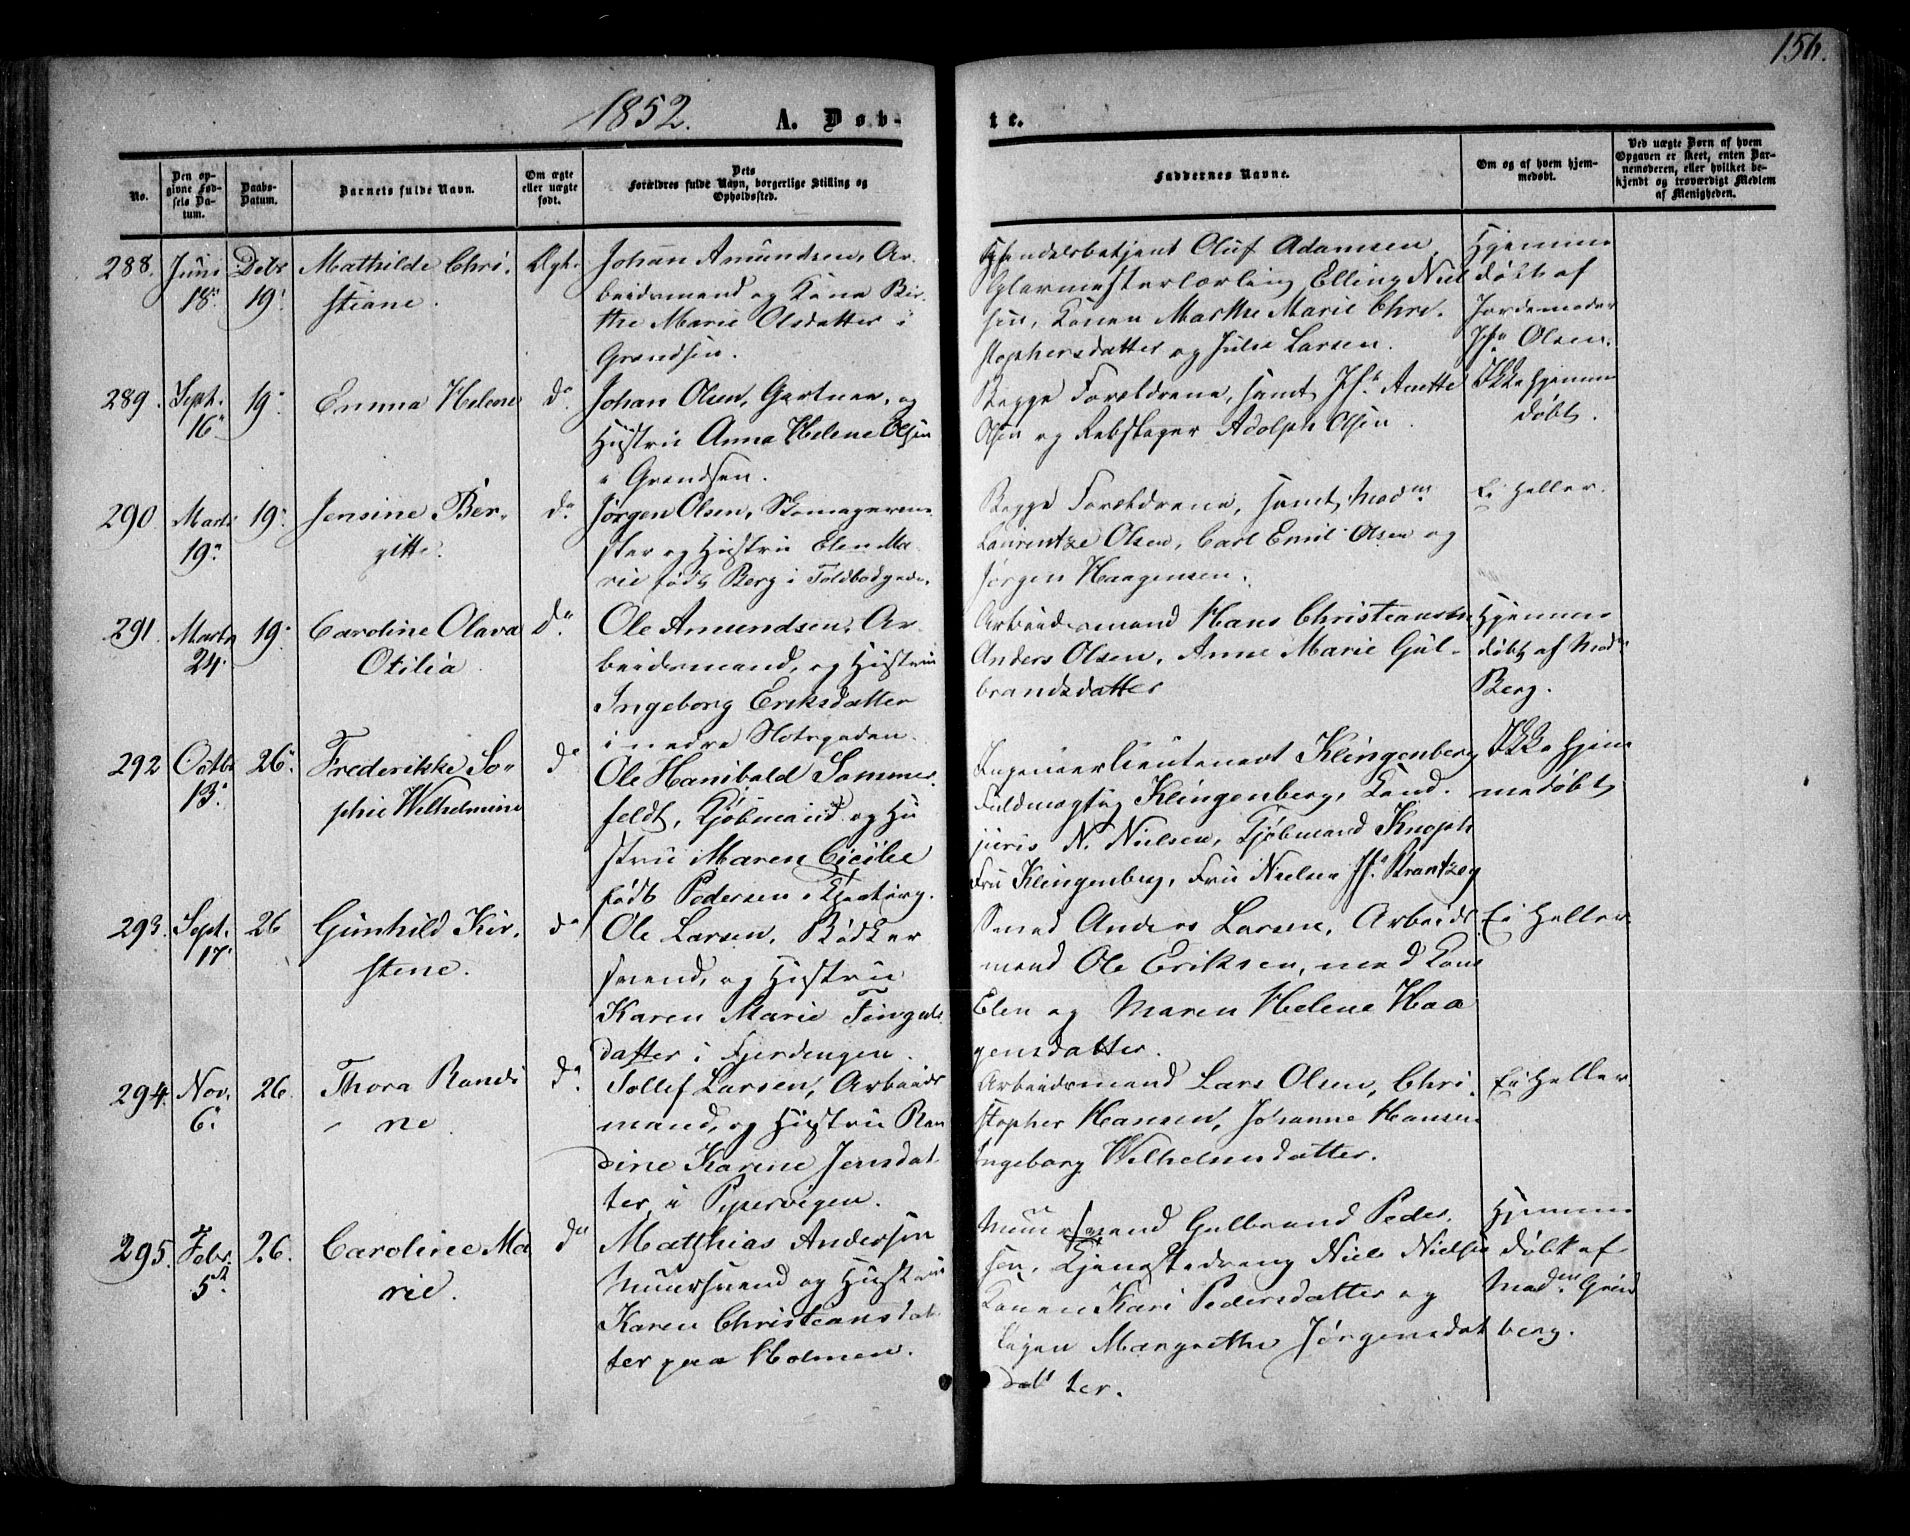 156.
1852. A. Døb-
te.
No.
Den op-
givne Fød-
sels Da-
tum.
Daabs-
Datum.
Barnets fulde Navn.
Om ægte
eller uægte
født.
Dets
Forældres fulde Navn, borgerlige Stilling og
Opholdssted.
Faddernes Navne.
Om og af hvem hjem-
medøbt.
Ved uægte Børn af hvem
Opgaven er skeet, enten Bar-
nemoderen, eller hvilket be-
kjendt og troværdigt Medlem
af Menigheden.
288. Juni
18.
Debr
19.
Mathilde Chri-
stiane.
Ægt.
Johan Amundsen, Ar-
beidsmand og Kone Bir-
the Marie Olsdatter i
Grændsen.
Handelsbetjent Oluf Adamsen
Glarmesterlærling Elling Niel
sen, Konen Marthe Marie Chri-
stophersdatter og Julie Larsen.
Hjemme
døbt af
Jordemoder
Jfr Olsen.
289. Sept.
16
19.
Emma Helene
do.
Johan Olsen, Gartner, og
Hustru Anna Helene Olsen
i Grændsen.
Begge Forældrene, samt Jfr. Anette
Olsen og Rebslager Adolph Olsen.
Ikke hjemme
døbt.
290 Marts
19.
19.
Jensine Ber-
gitte.
do.
Jørgen Olsen, Skomagerme-
ster og Hustru Elen Ma-
rie født Berg i Toldbodgaden.
Begge Forældrene, samt Madm
Laurentze Olsen, Carl Emil Olsen og
Jørgen Haagensen.
Ei heller.
291. Marts
24.
19.
Caroline Olava
Otilia.
do.
Ole Amundsen, Ar-
beidsmand, og Hustru
Ingeborg Eriksdatter
i nedre Slotsgaden.
Arbeidsmand Hans Christiansen
Anders Olsen, Anne Marie Gul-
brandsdatter
Hjemme
døbt af Madm
Berg.
292 Octbr
13.
26.
Frederikke So-
phie Wilhelmine
do
Ole Hanibald Sommer-
feldt, Kjøbmand og Hu
stru Maren Cicilie
født Pedersen i
Ingenieurlieutenant Klingenberg
Fuldmægtig Klingenberg, Cand.
juris N. Nielsen, Kjøbmand Knoph
Fru Klingenberg, Fru Nielsen Jfr. Krantzog
Ikke hjem
medøbt
293. Sept.
17.
26
Gunhild Kir-
stine.
do
Ole Larsen, Bødker
svend, og Hustru
Karen Marie Tingels
datter i Fjerdingen.
Smed Anders Larsen, Arbeids
mand Ole Eriksen, med Kone
Elen og Maren Helene Haa
gensdatter.
Ei heller
294. Nov.
6.
26.
Thora Randi
ne
do.
Tollef Larsen, Arbeids
mand, og Hustru Ran
dine Karine Jensdat
ter i Pipervigen.
Arbeidsmand Lars Olsen, Chri-
stopher Hansen, Johanne Hansen
Ingeborg Wilhelmsdatter.
Ei heller
295. Febr.
5
26.
Caroline Ma
rie.
do
Matthias Andersen
Muursvend og Hustru
Karen Christiansdat
ter paa Holmen.
Muursvend Gulbrand Peder-
sen, Tjenestedreng Niels Nielsen
Konen Kari Pedersdatter og
Pigen Margrethe Jørgensdat
ter.
Hjemme
døbt af
Madm. Grønd
berg.